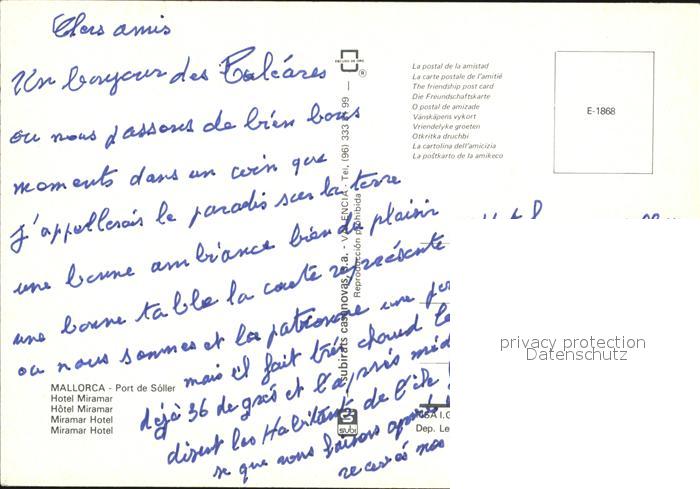 Chers amis
Un bonjour des Baléares
ou nous passons de bien bons
moments dans un coin que
j'appellerais le paradis sur la terre
une bonne ambiance bien du plaisir
une bonne table la carte représente
ou nous sommes et la patronne une
mais il fait très chaud
déjà 36 degrés et l'après
disent les Habitants de l'île
se que nous faisons après
recevés nos
MALLORCA - Port de Sóller
Hotel Miramar
Hôtel Miramar
Miramar Hotel
Miramar Hotel
ESCUDO DE ORO
®
subirats casanovas, s.a. - VALENCIA - Tel. (96) 333 99 —
Reproducción prohibida
3
SUBI
La postal de la amistad
La carte postale de l'amitié
The friendship post card
Die Freundschaftskarte
O postal de amizade
Vänskäpens vykort
Vriendelyke groeten
Otkritka druchbi
La cartolina dell'amicizia
La poŝtkarto de la amikeco
E-1868
Dep. Le
privacy protection
Datenschutz